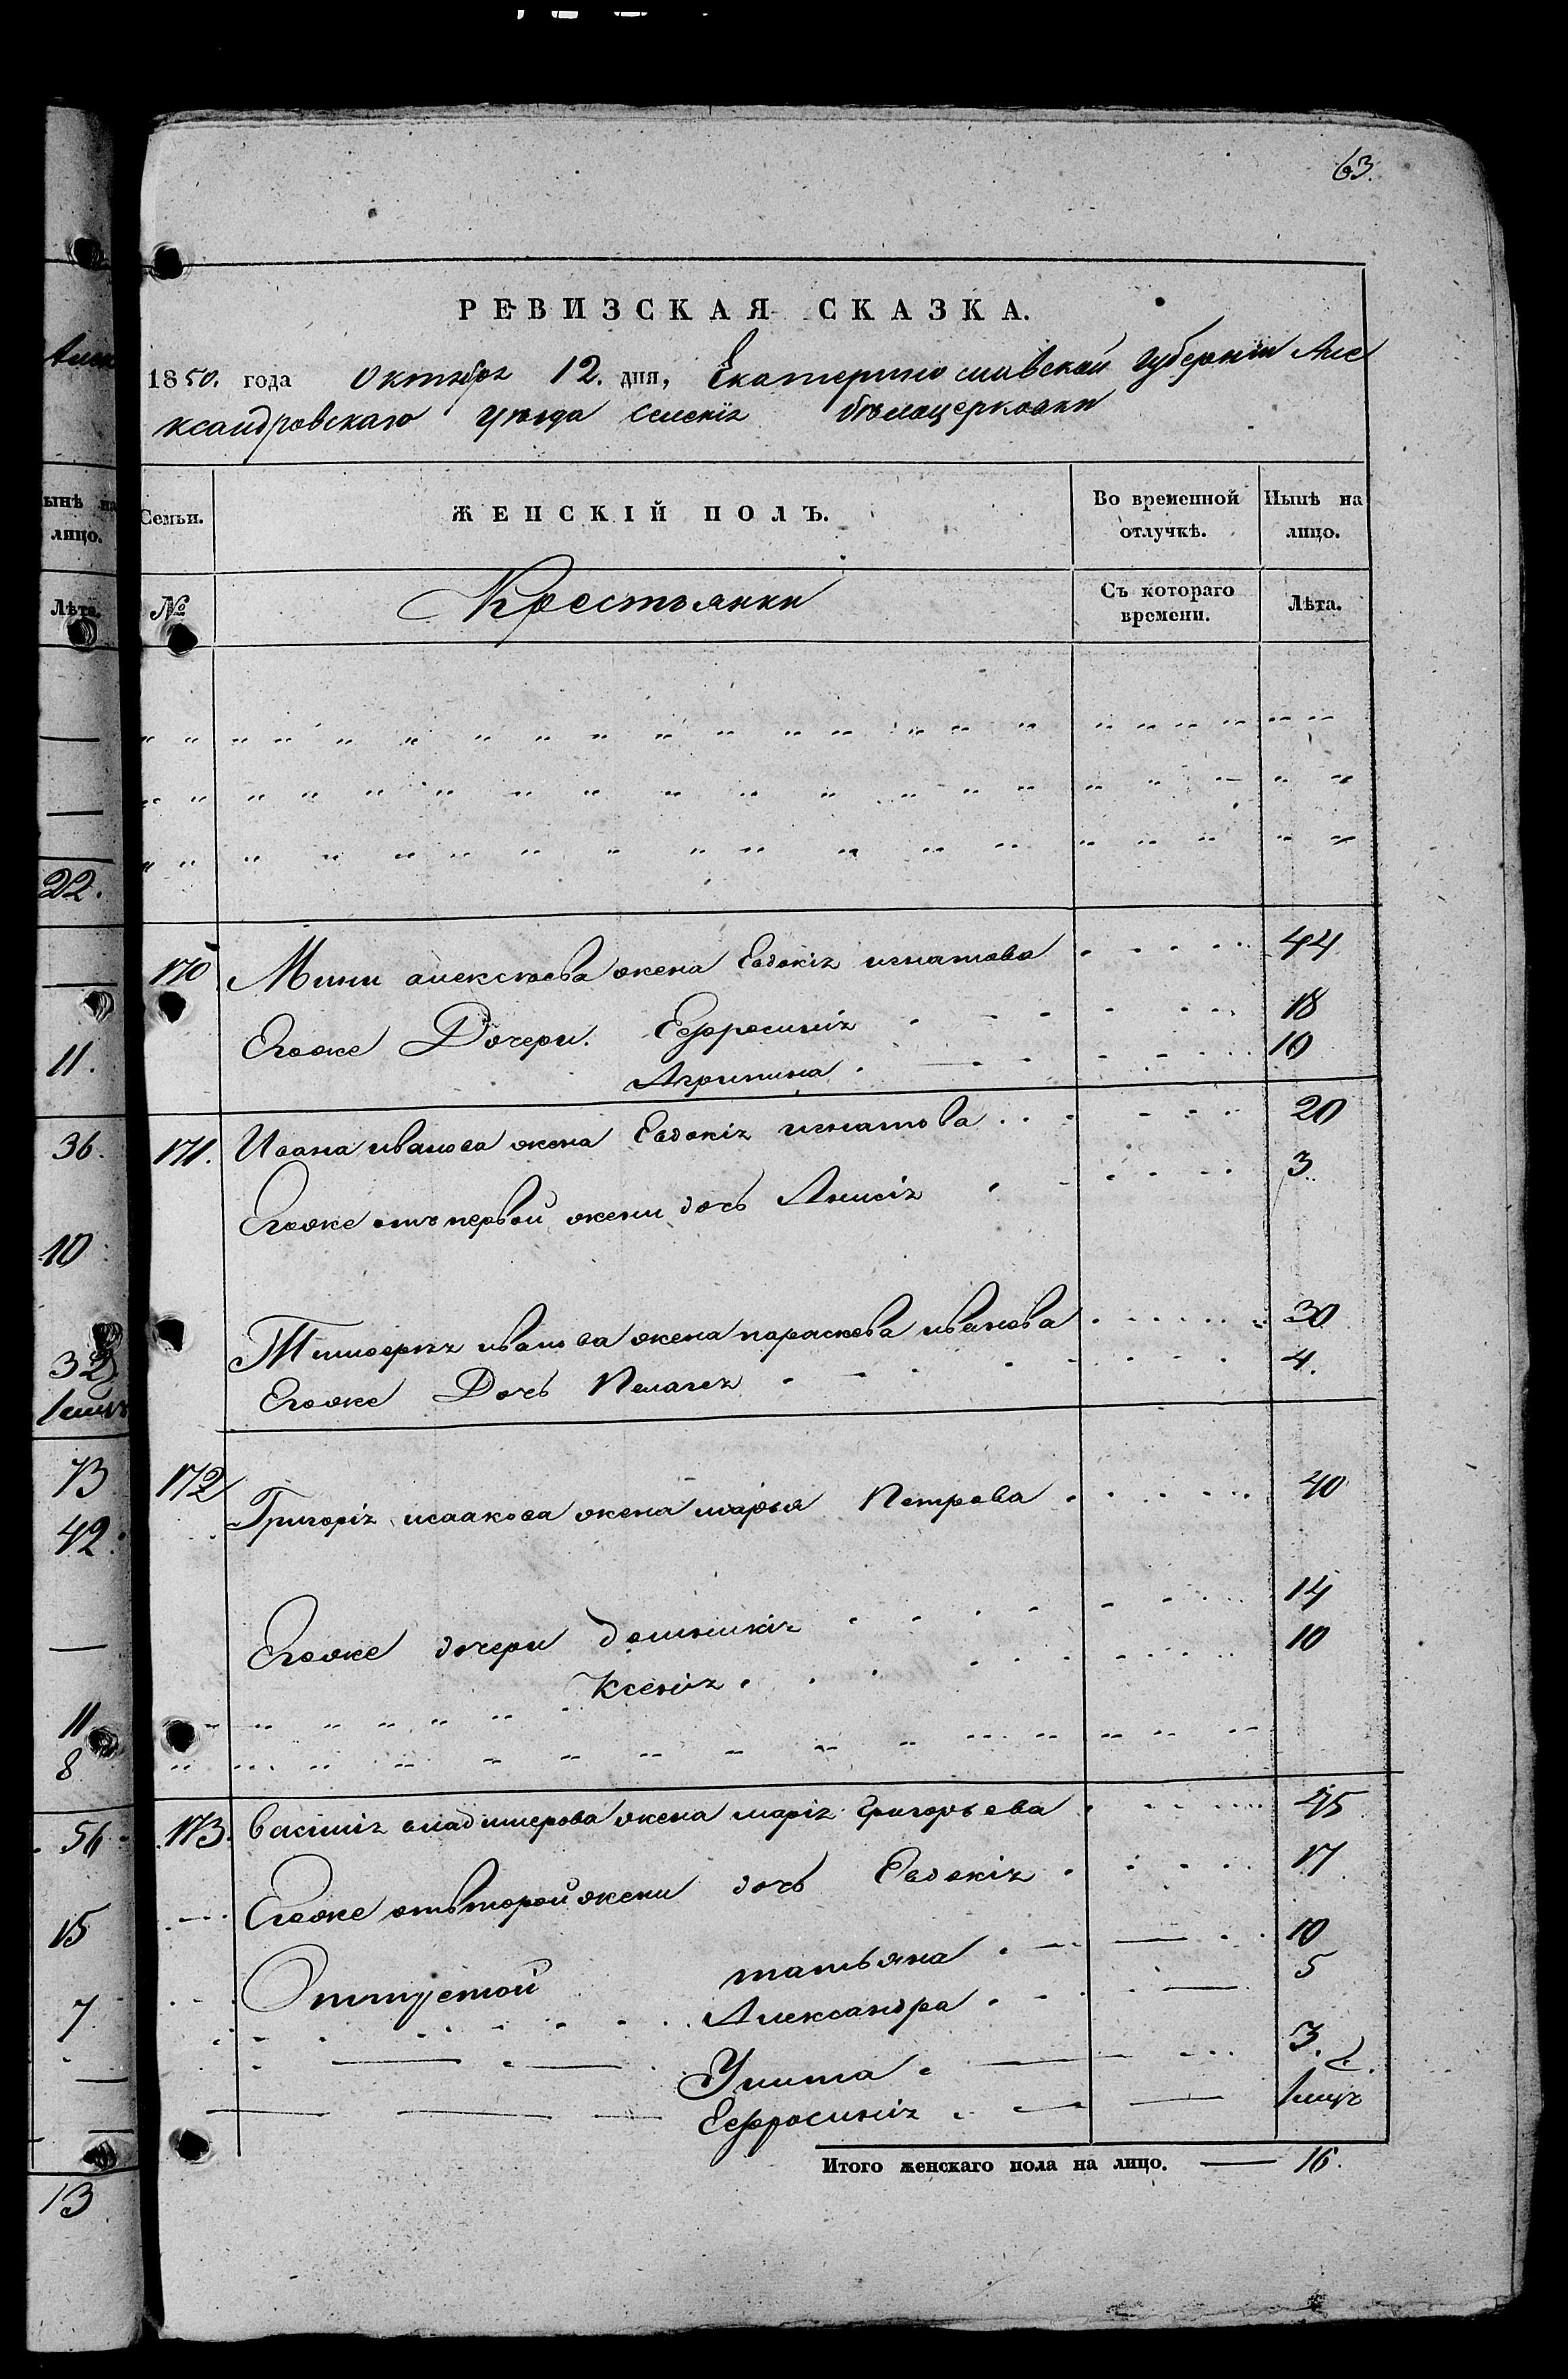 63.
РЕВИЗСКАЯ СКАЗКА.
1850. года Октября 12. дня, Екатеринославской Губернии Алє
ксандровскаго уѣзда селенія бѣлоцерковки
Семьи. ЖЕНСКІЙ ПОЛЪ. Во временной отлучкѣ. Нынѣ на лицо.
№ Крестьянки Съ котораго времени. Лѣта.
170 Мины алексѣева жена Евдокія игнатова 44
Егоже Дочери. Ефросинія 18
Агрипина 10
171. Ивана иванова жена Евдокія игнатова 20
Егоже отъ первой жены дочь Анисія 3
Тимофѣя иванова жена параскева иванова 30
Егоже Дочь Пелагея 4.
172 Григорія исаакова жена марья Петрова 40
Егоже дочери домникія 14
Ксенія 10
173. василія владимерова жена марія григорьева 45
Егоже отвторой жены дочь Евдокія 17
Оттретой татьяна 10
Александра 5
Улита 3.
Ефросинія 1 мцъ
Итого женскаго пола на лицо. — 16.
ынѣ на
лицо.
Лѣта.
22.
11.
36.
10
32
73
42.
11
8
56
15
7
13